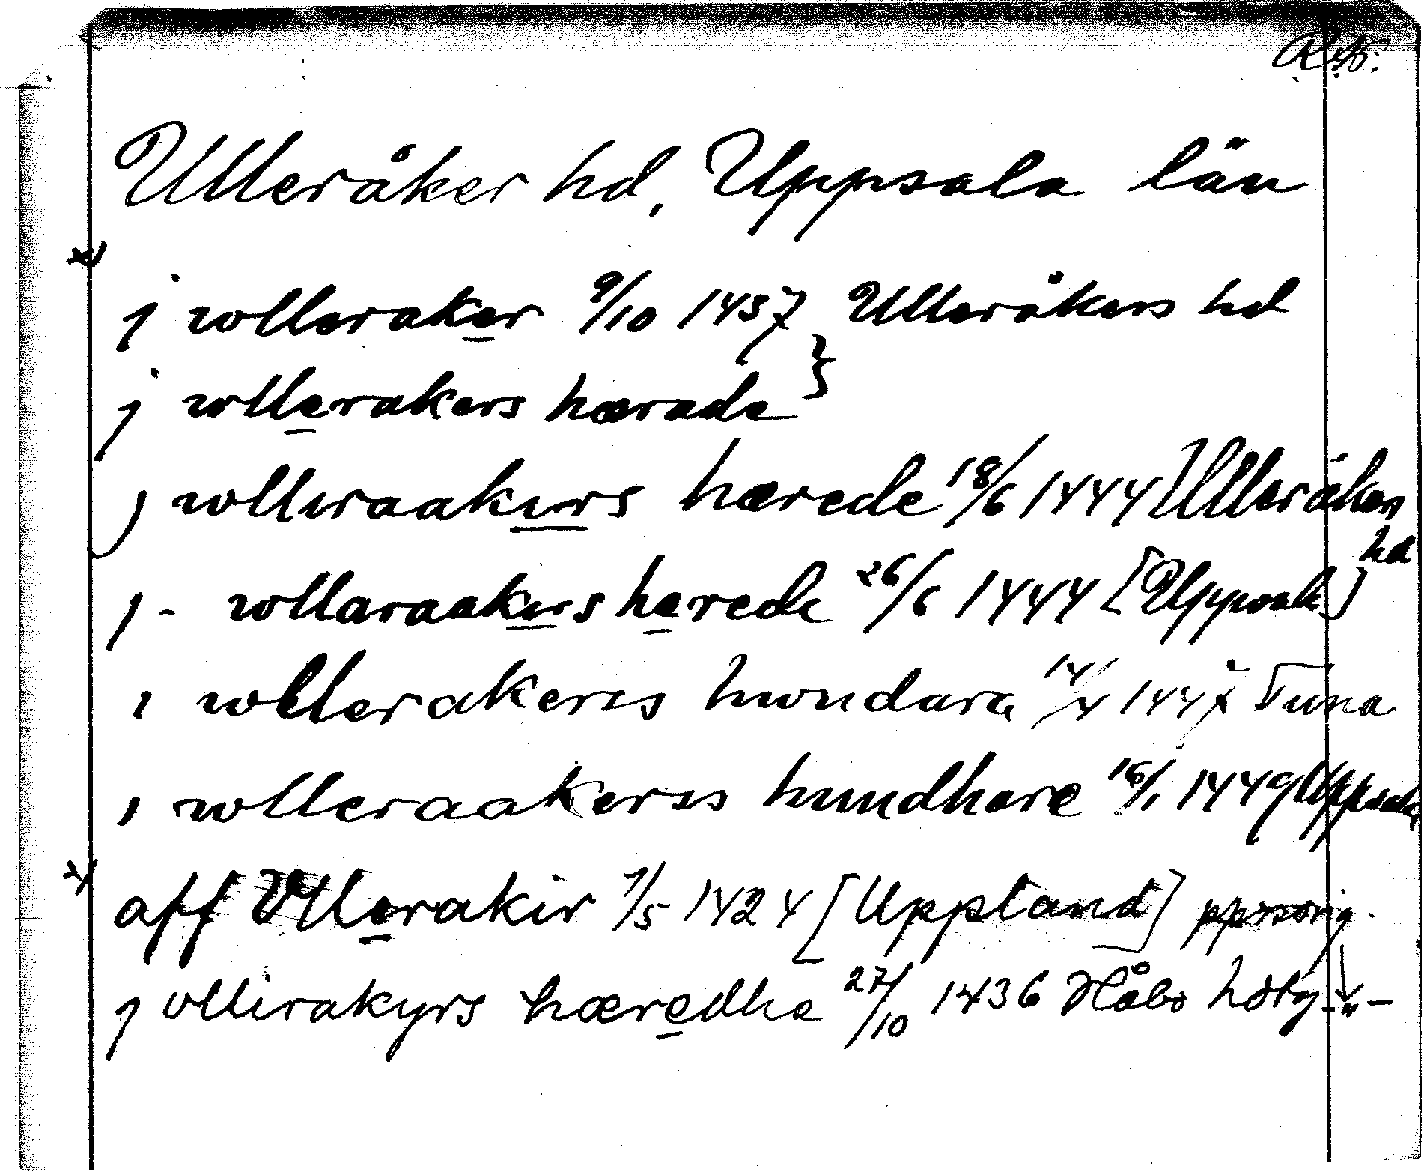 Ulleråker hd, Uppsala län
j wlleraker 9/10 1457 Ulleråkers hd
j wllerakers hærade }
j wlliraakirs hærede 18/6 1444 Ulleråkers hd
j - wllaraakirs herede 26/6 1444 [Uppsala]
i wllerakerss hwndara 14/4 1447 Tuna
i wlleraakerss hundhare 16/1 1449 Uppsala
aff Vllerakir 7/5 1424 [Uppland]
j vllirakyrs hæredhe 27/10 1436 Håbo hdtg - " -